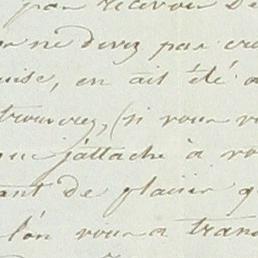 pas recevoir de
ne devez pas cro
uise, en ait été a
trouverez, (si vous v
que j'attache à vo
ant de plaisir q
l'on vous a tran